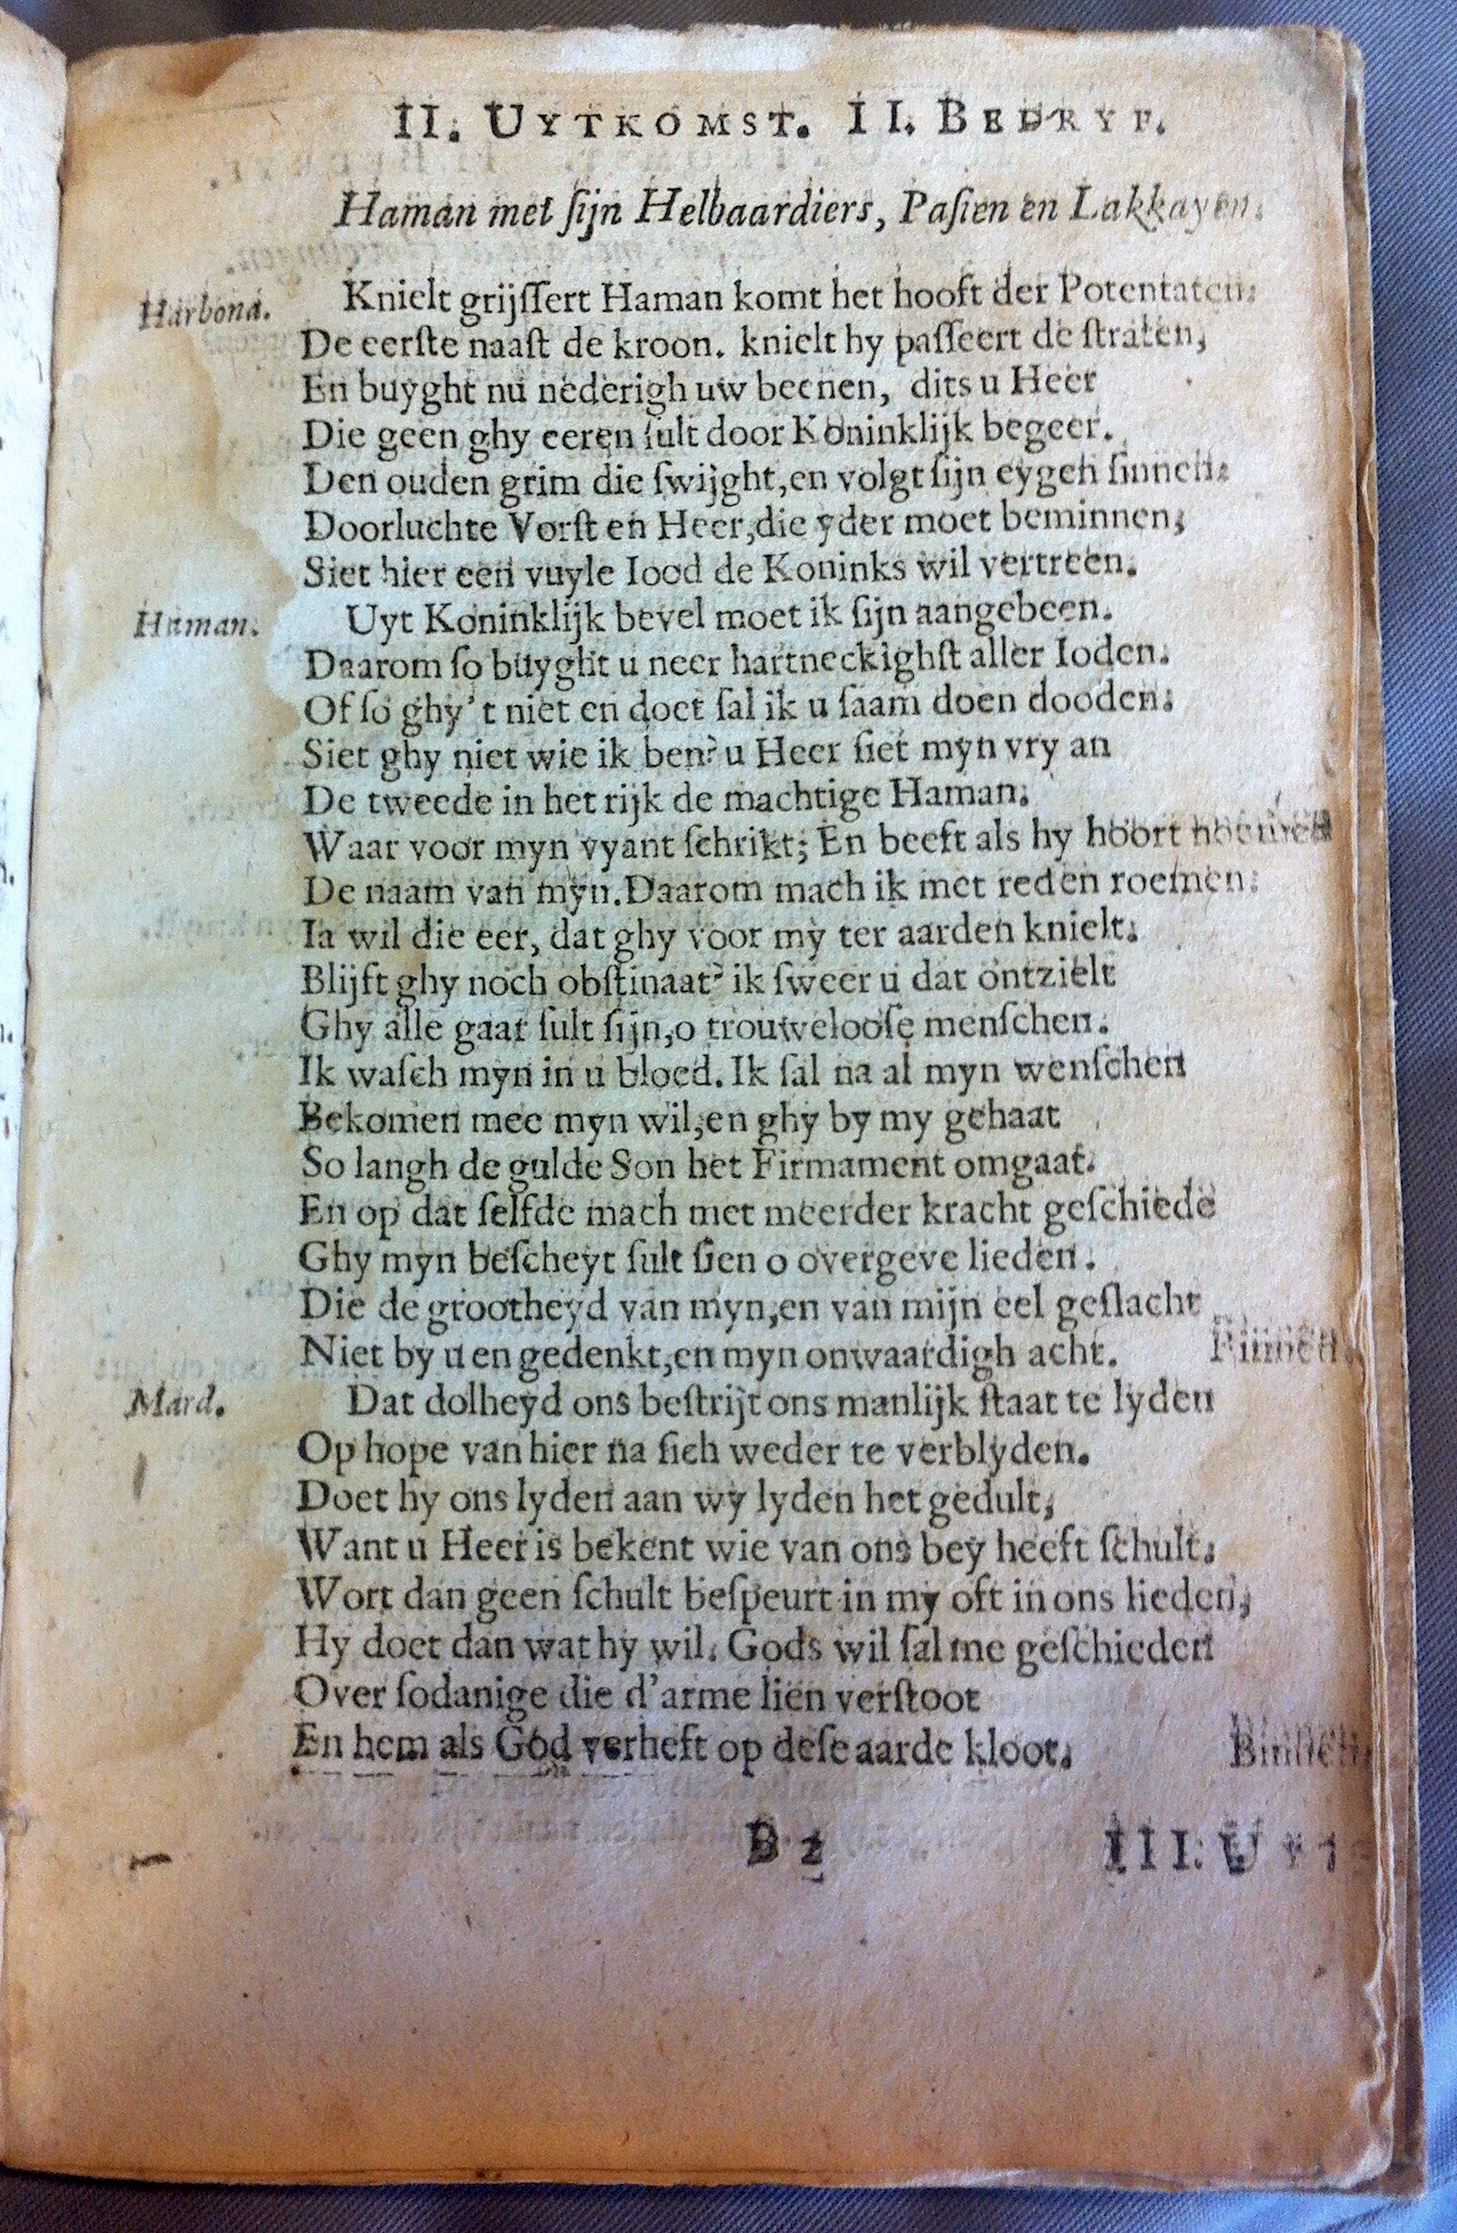 II. UYTKOMST. II. BEDRYF.
Haman met ſijn Helbaardiers, Paſien en Lakkayen.
Harbona. Knielt grijſſert Haman komt het hooft der Potentaten.
De eerſte naaſt de kroon. knielt hy paſſeert de ſtraten,
En buyght nu nederigh uw beenen, dits u Heer
Die geen ghy eeren ſult door Koninklijk begeer.
Den ouden grim die ſwijght,en volgt ſijn eygen ſinnen.
Doorluchte Vorſt en Heer,die yder moet beminnen,
Siet hier een vuyle Iood de Koninks wil vertreen.
Haman. Uyt Koninklijk bevel moet ik ſijn aangebeen.
Daarom ſo buyght u neer hartneckighſt aller Ioden.
Of ſo ghy't niet en doet ſal ik u ſaam doen dooden.
Siet ghy niet wie ik ben? u Heer ſiet myn vry an
De tweede in het rijk de machtige Haman.
Waar voor myn vyant ſchrikt; En beeft als hy hoort noemen
De naam van myn.Daarom mach ik met reden roemen.
Ia wil die eer, dat ghy voor my ter aarden knielt.
Blijft ghy noch obſtinaat? ik ſweer u dat ontzielt
Ghy alle gaar ſult ſijn,o trouwelooſe menſchen.
Ik waſch myn in u bloed. Ik ſal na al myn wenſchen
Bekomen mee myn wil,en ghy by my gehaat
So langh de gulde Son het Firmament omgaat.
En op dat ſelfde mach met meerder kracht geſchiede
Ghy myn beſcheyt ſult ſien o overgeve lieden.
Die de grootheyd van myn,en van mijn eel geſlacht
Niet by u en gedenkt,en myn onwaardigh acht. Binnen.
Mard. Dat dolheyd ons beſtrijt ons manlijk ſtaat te lyden
Op hope van hier na ſich weder te verblyden.
Doet hy ons lyden aan wy lyden het gedult,
Want u Heer is bekent wie van ons bey heeft ſchult.
Wort dan geen ſchult beſpeurt in my oft in ons lieden,
Hy doet dan wat hy wil. Gods wil ſal me geſchieden
Over ſodanige die d'arme lien verſtoot
En hem als God verheft op deſe aarde kloot. Binnen.
B 2 III. UYT-